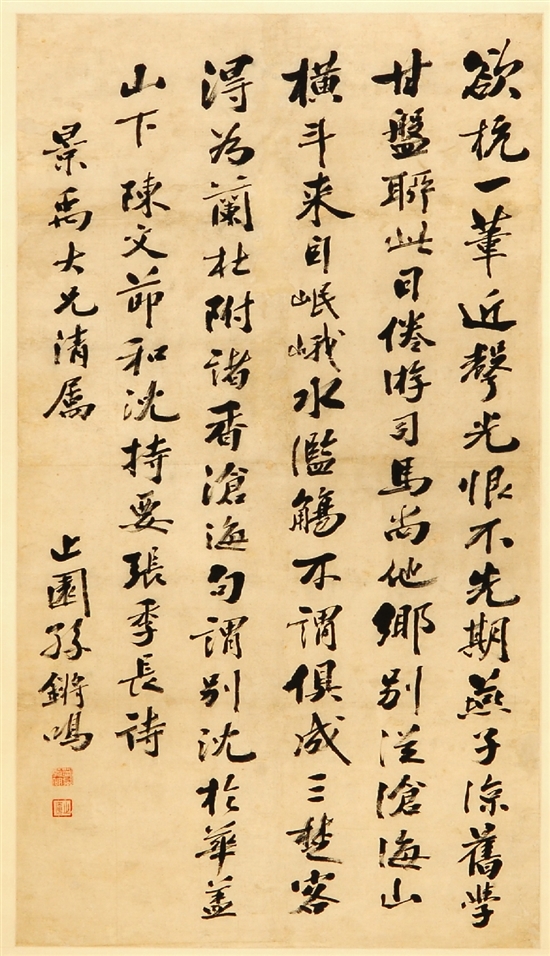 欲杭一葦近聲光恨不先期燕子涼舊學
甘盤聯此日倦游司馬尚他鄉別從滄海山
橫斗来自岷峨水濫觴不謂俱成三楚客
得為蘭杜附諸香滄海句謂別沈於華蓋
山下陳文節和沈持要張季長詩
景禹大兄清屬
止園孫鏘鳴